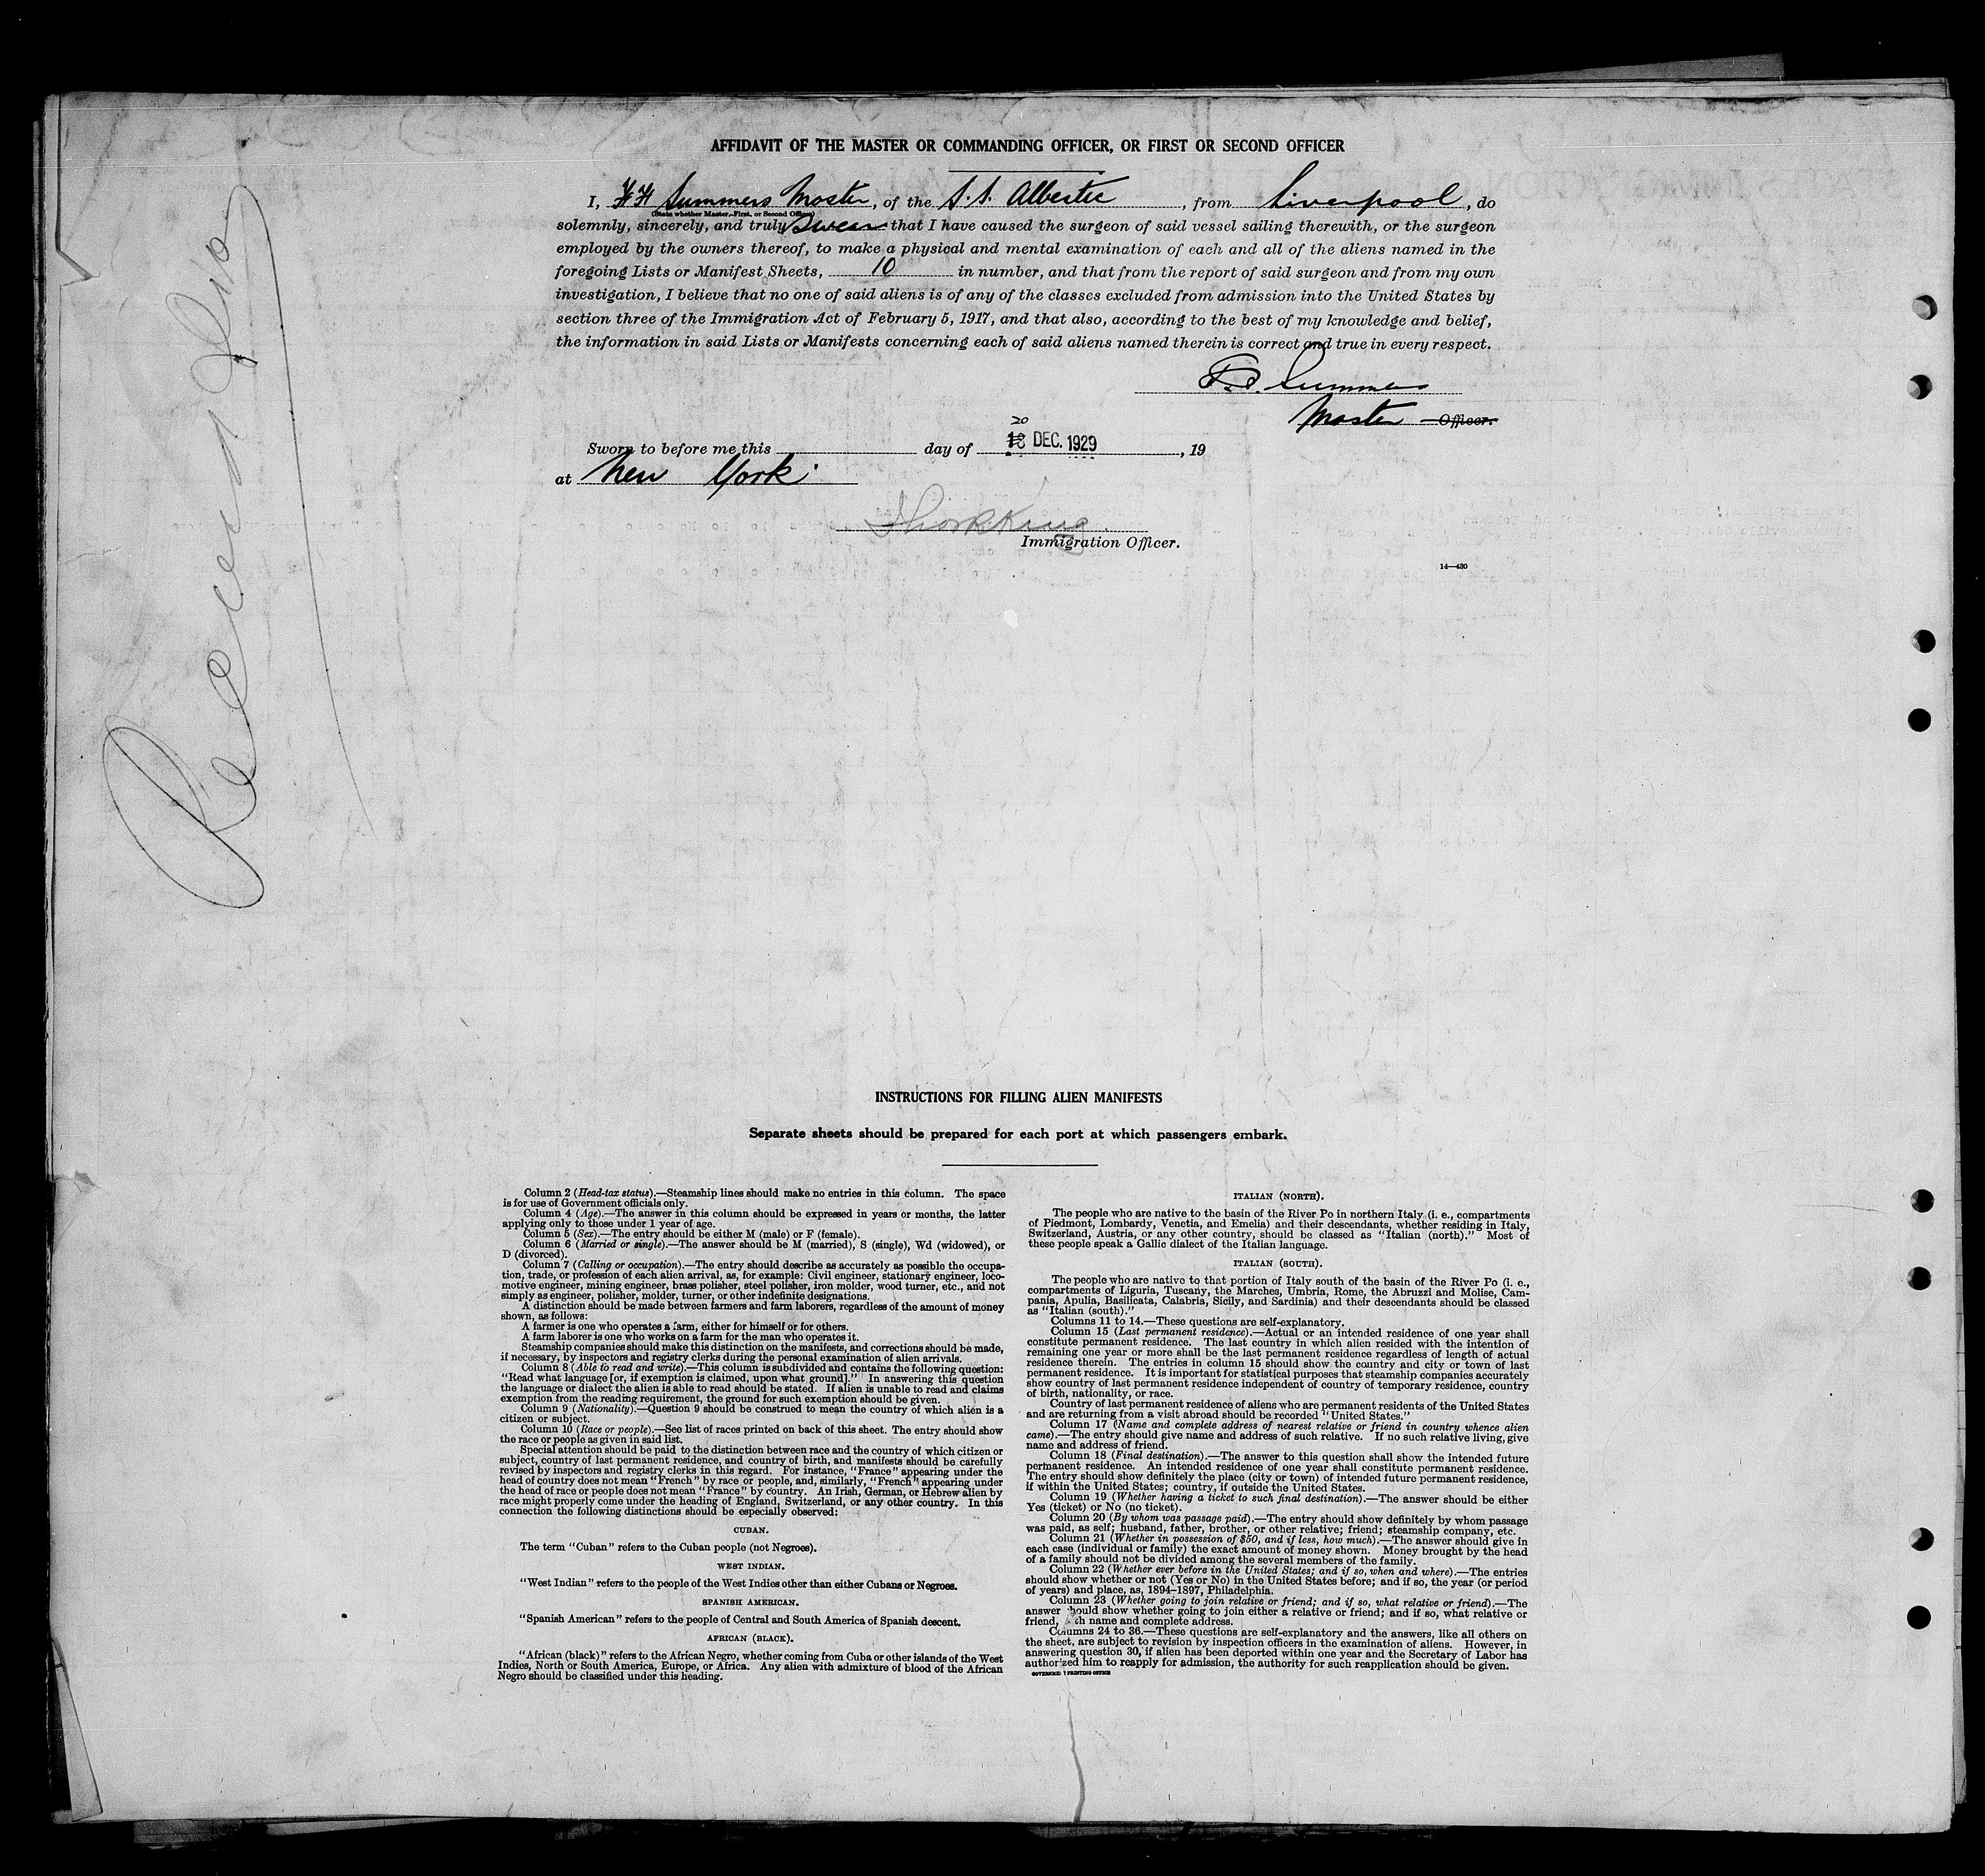 AFFIDAVIT OF THE MASTER OR COMMANDING OFFICER, OR FIRST OR SECOND OFFICER
I, Summers Master, of the S.S. Albertic, from Liverpool, do
(State whether Master, First, or Second Officer)
solemnly, sincerely, and truly swear that I have caused the surgeon of said vessel sailing therewith, or the surgeon
employed by the owners thereof, to make a physical and mental examination of each and all of the aliens named in the
foregoing Lists or Manifest Sheets, 10 in number, and that from the report of said surgeon and from my own
investigation, I believe that no one of said aliens is of any of the classes excluded from admission into the United States by
section three of the Immigration Act of February 5, 1917, and that also, according to the best of my knowledge and belief,
the information in said Lists or Manifests concerning each of said aliens named therein is correct and true in every respect.
Summers
Master Officer.
20
Sworn to before me this day of 18 DEC. 1929, 19
at New York.
Immigration Officer.
14—430
INSTRUCTIONS FOR FILLING ALIEN MANIFESTS
Separate sheets should be prepared for each port at which passengers embark.
Column 2 (Head-tax status).—Steamship lines should make no entries in this column. The space
is for use of Government officials only.
Column 4 (Age).—The answer in this column should be expressed in years or months, the latter
applying only to those under 1 year of age.
Column 5 (Sex).—The entry should be either M (male) or F (female).
Column 6 (Married or single).—The answer should be M (married), S (single), Wd (widowed), or
D (divorced).
Column 7 (Calling or occupation).—The entry should describe as accurately as possible the occupa-
tion, trade, or profession of each alien arrival, as, for example: Civil engineer, stationary engineer, loco-
motive engineer, mining engineer, brass polisher, steel polisher, iron molder, wood turner, etc., and not
simply as engineer, polisher, molder, turner, or other indefinite designations.
A distinction should be made between farmers and farm laborers, regardless of the amount of money
shown, as follows:
A farmer is one who operates a farm, either for himself or for others.
A farm laborer is one who works on a farm for the man who operates it.
Steamship companies should make this distinction on the manifests, and corrections should be made,
if necessary, by inspectors and registry clerks during the personal examination of alien arrivals.
Column 8 (Able to read and write).—This column is subdivided and contains the following question:
"Read what language [or, if exemption is claimed, upon what ground]." In answering this question
the language or dialect the alien is able to read should be stated. If alien is unable to read and claims
exemption from the reading requirement, the ground for such exemption should be given.
Column 9 (Nationality).—Question 9 should be construed to mean the country of which alien is a
citizen or subject.
Column 10 (Race or people).—See list of races printed on back of this sheet. The entry should show
the race or people as given in said list.
Special attention should be paid to the distinction between race and the country of which citizen or
subject, country of last permanent residence, and country of birth, and manifests should be carefully
revised by inspectors and registry clerks in this regard. For instance, "France" appearing under the
head of country does not mean "French" by race or people, and, similarly, "French" appearing under
the head of race or people does not mean "France" by country. An Irish, German, or Hebrew alien by
race might properly come under the heading of England, Switzerland, or any other country. In this
connection the following distinctions should be especially observed:
CUBAN.
The term "Cuban" refers to the Cuban people (not Negroes).
WEST INDIAN.
"West Indian" refers to the people of the West Indies other than either Cubans or Negroes.
SPANISH AMERICAN.
"Spanish American" refers to the people of Central and South America of Spanish descent.
AFRICAN (BLACK).
"African (black)" refers to the African Negro, whether coming from Cuba or other islands of the West
Indies, North or South America, Europe, or Africa. Any alien with admixture of blood of the African
Negro should be classified under this heading.
ITALIAN (NORTH).
The people who are native to the basin of the River Po in northern Italy (i. e., compartments
of Piedmont, Lombardy, Venetia, and Emelia) and their descendants, whether residing in Italy,
Switzerland, Austria, or any other country, should be classed as "Italian (north)." Most of
these people speak a Gallic dialect of the Italian language.
ITALIAN (SOUTH).
The people who are native to that portion of Italy south of the basin of the River Po (i. e.,
compartments of Liguria, Tuscany, the Marches, Umbria, Rome, the Abruzzi and Molise, Cam-
pania, Apulia, Basilicata, Calabria, Sicily, and Sardinia) and their descendants should be classed
as "Italian (south)."
Columns 11 to 14.—These questions are self-explanatory.
Column 15 (Last permanent residence).—Actual or an intended residence of one year shall
constitute permanent residence. The last country in which alien resided with the intention of
remaining one year or more shall be the last permanent residence regardless of length of actual
residence therein. The entries in column 15 should show the country and city or town of last
permanent residence. It is important for statistical purposes that steamship companies accurately
show country of last permanent residence independent of country of temporary residence, country
of birth, nationality, or race.
Country of last permanent residence of aliens who are permanent residents of the United States
and are returning from a visit abroad should be recorded "United States."
Column 17 (Name and complete address of nearest relative or friend in country whence alien
came).—The entry should give name and address of such relative. If no such relative living, give
name and address of friend.
Column 18 (Final destination).—The answer to this question shall show the intended future
permanent residence. An intended residence of one year shall constitute permanent residence.
The entry should show definitely the place (city or town) of intended future permanent residence,
if within the United States; country, if outside the United States.
Column 19 (Whether having a ticket to such final destination).—The answer should be either
Yes (ticket) or No (no ticket).
Column 20 (By whom was passage paid).—The entry should show definitely by whom passage
was paid, as self; husband, father, brother, or other relative; friend; steamship company, etc.
Column 21 (Whether in possession of $50, and if less, how much).—The answer should give in
each case (individual or family) the exact amount of money shown. Money brought by the head
of a family should not be divided among the several members of the family.
Column 22 (Whether ever before in the United States; and if so, when and where).—The entries
should show whether or not (Yes or No) in the United States before; and if so, the year (or period
of years) and place, as, 1894–1897, Philadelphia.
Column 23 (Whether going to join relative or friend; and if so, what relative or friend).—The
answer should show whether going to join either a relative or friend; and if so, what relative or
friend, with name and complete address.
Columns 24 to 36.—These questions are self-explanatory and the answers, like all others on
the sheet, are subject to revision by inspection officers in the examination of aliens. However, in
answering question 30, if alien has been deported within one year and the Secretary of Labor has
authorized him to reapply for admission, the authority for such reapplication should be given.
GOVERNMENT PRINTING OFFICE